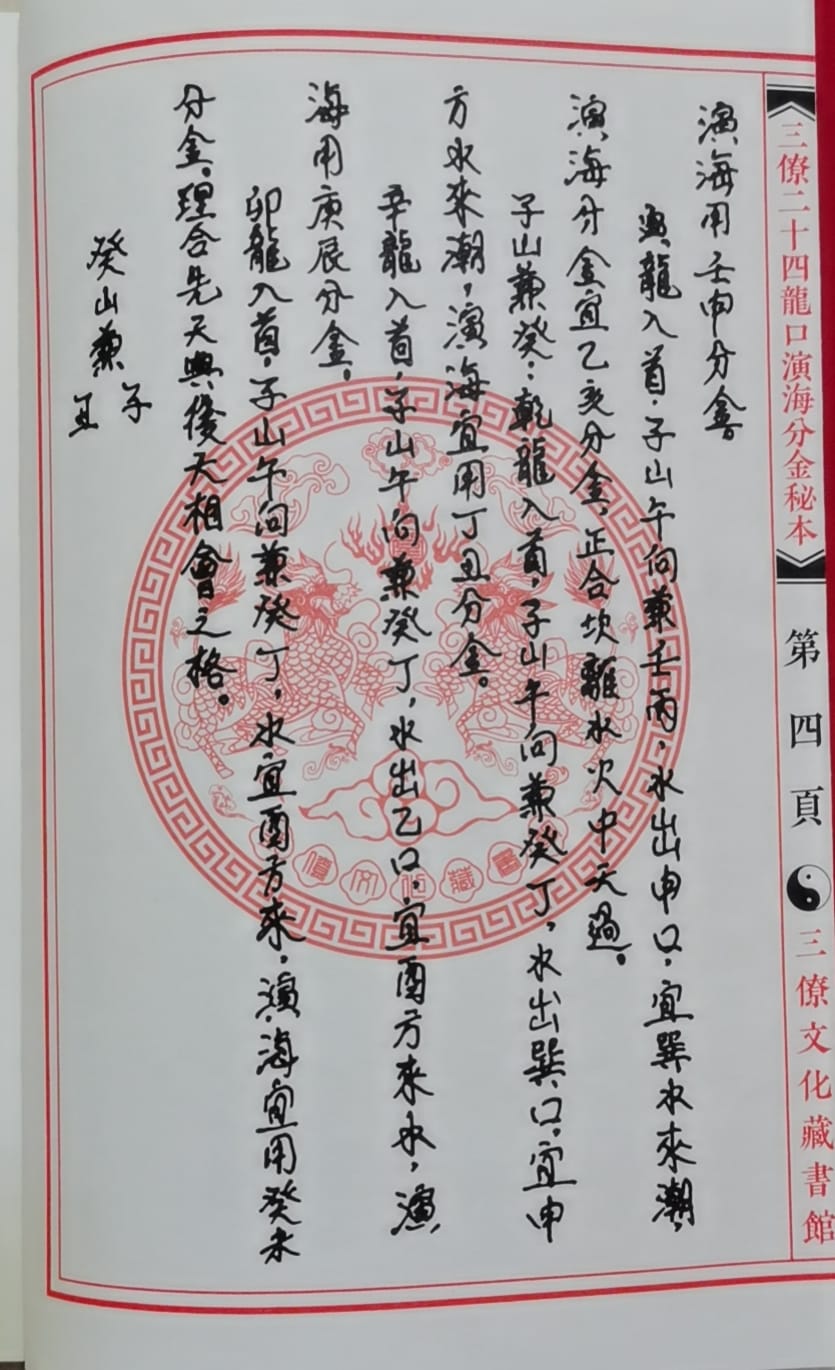 三僚二十四龍口演海分金秘本
第四頁
三僚文化藏書館
演海用壬申分金
龍入首，子山午向兼壬丙，水出申口，宜巽水來潮，
演海分金宜乙亥分金，正合坎離水火中天過。
子山兼癸：乾龍入首，子山午向兼癸丁，水出巽口，宜申
方水來潮，演海宜用丁丑分金。
辛龍入首，子山午向兼癸丁，水出乙口，宜酉方來水，演
海用庚辰分金。
卯龍入首，子山午向兼癸丁，水宜酉方來，演海宜用癸未
分金，理合先天與後天相會之格。
癸山兼子
丑
藏書